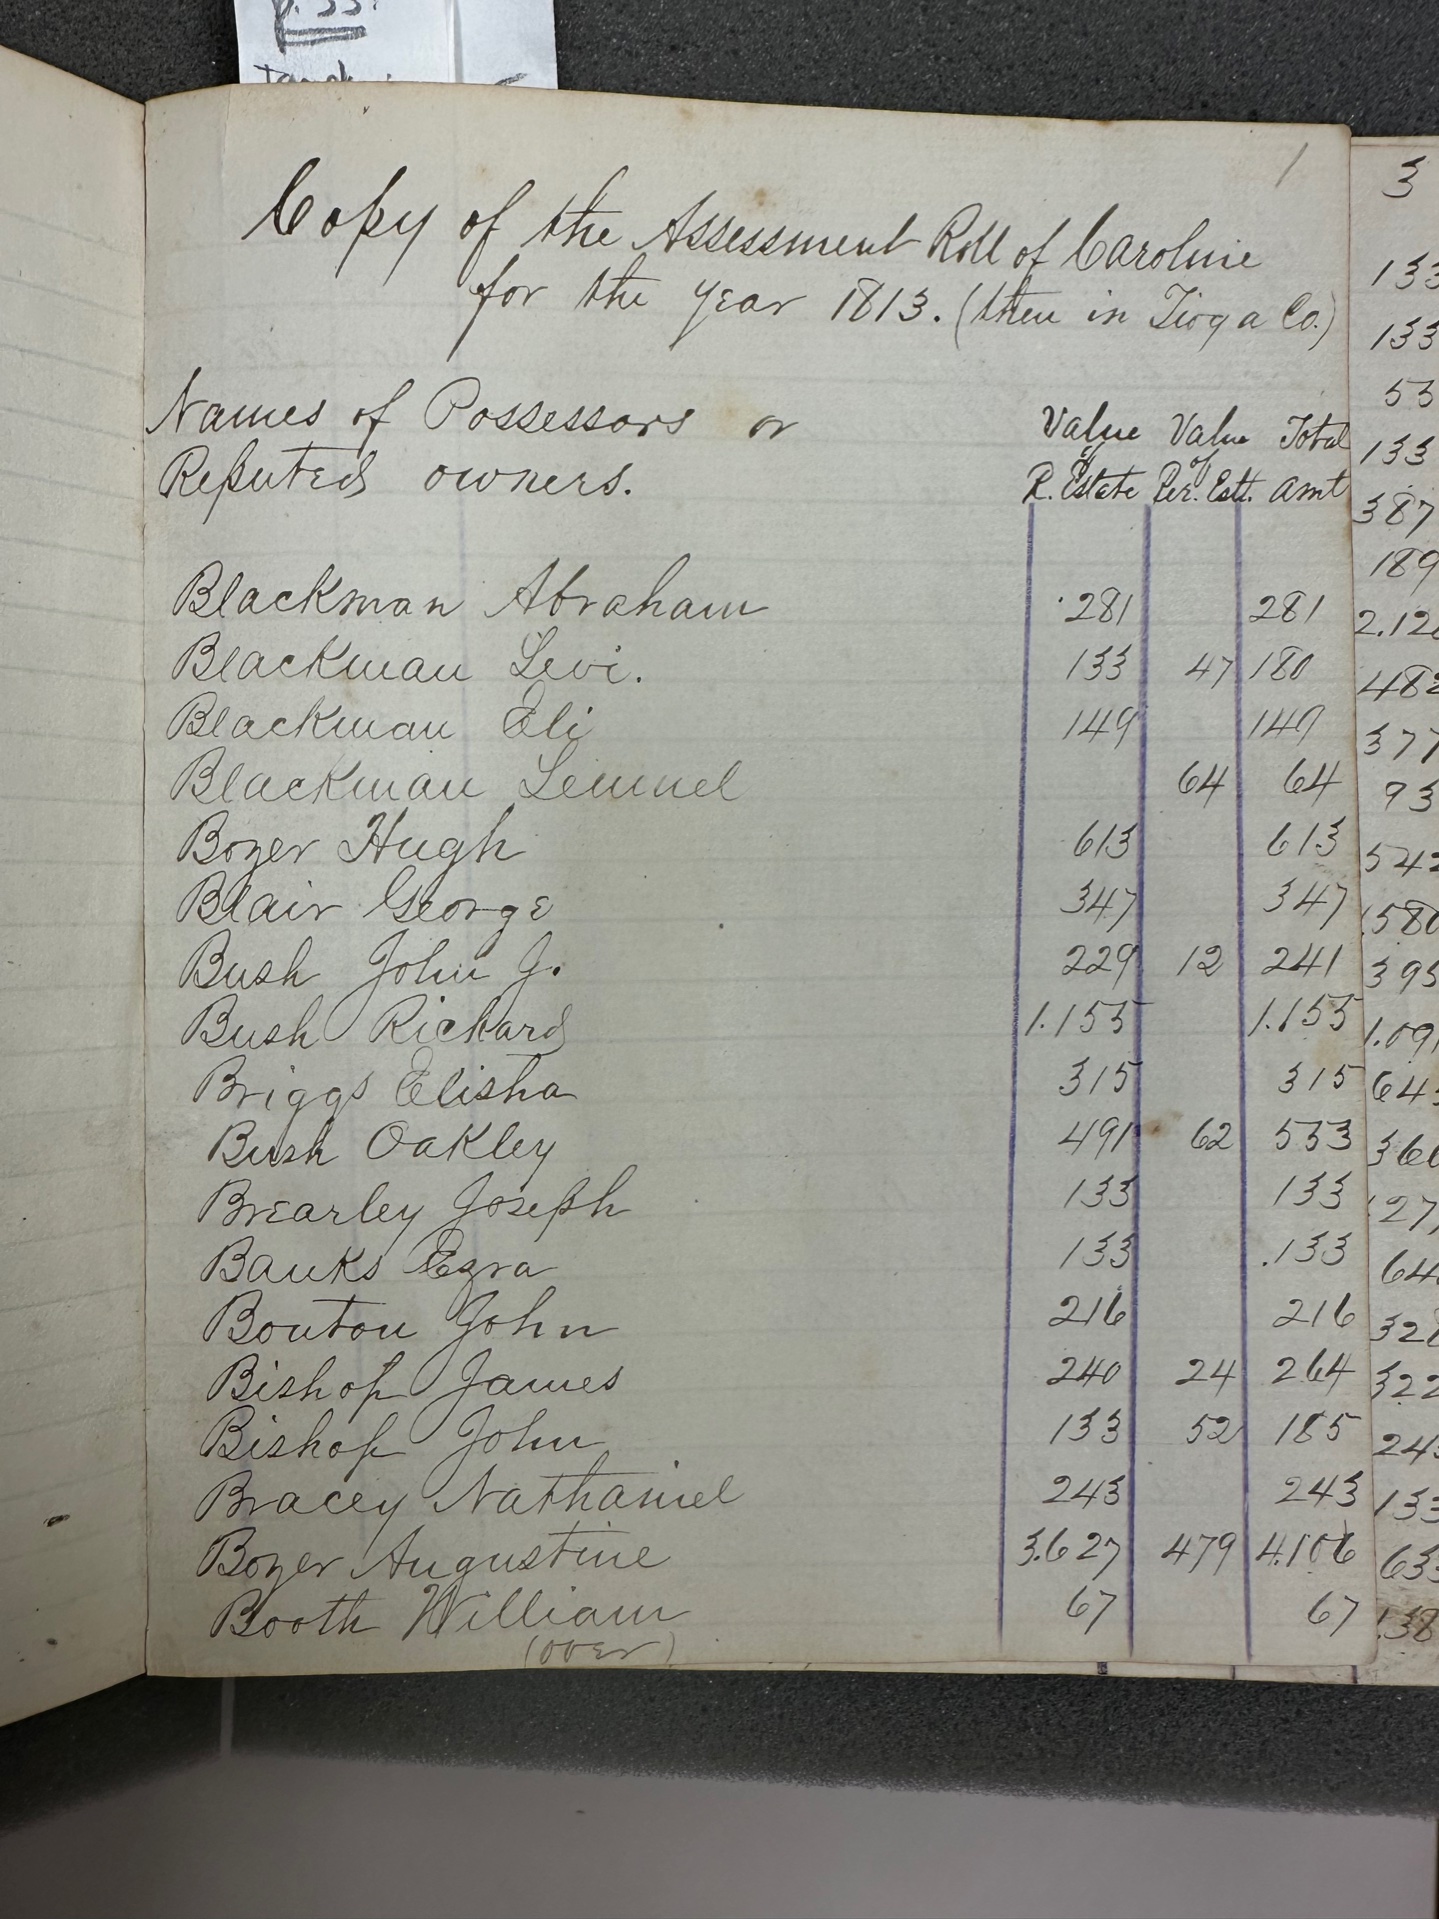 p. 33.
1
Copy of the Assessment Roll of Caroline
for the year 1813. (then in Tioga Co.)
Names of Possessors or
Reputed owners.
Value of R. Estate Value of Per. Est. Total Amt
Blackman Abraham 281 281
Blackman Levi. 133 47 180
Blackman Eli 149 149
Blackman Lemuel 64 64
Bozer Hugh 613 613
Blair George 347 347
Bush John J. 229 12 241
Bush Richard 1.155 1.155
Briggs Elisha 315 315
Bush Oakley 491 62 553
Brearley Joseph 133 133
Banks Ezra 133 133
Bouton John 216 216
Bishop James 240 24 264
Bishop John 133 52 185
Bracey Nathaniel 243 243
Bozer Augustine 3.627 479 4.106
Booth William 67 67
(over)
3
133
133
53
133
387
189
377
93